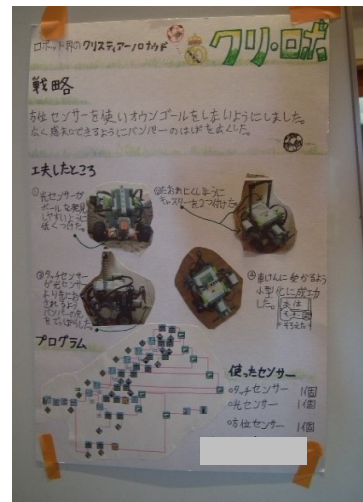 ロボット界のクリスティアーノロナウド
クリ・ロボ
戦略
方位センサーを使いオウンゴールをしまいようにしました。
広く感知できるようにバンパーのはばを広くした。
工夫したところ
①光センサーが
ボールを発見
しやすいように
低くつけた。
②たおれにくいように
キャスターを2つ付けた。
③タッチセンサー
が光センサー
より先におさ
れるよう
バンパーの先
をでっぱらした
④車けんに受かるよう
小型化に成功
した。
プログラム
使ったセンサー
○タッチセンサー 1個
○光センサー 1個
○方位センサー 1個